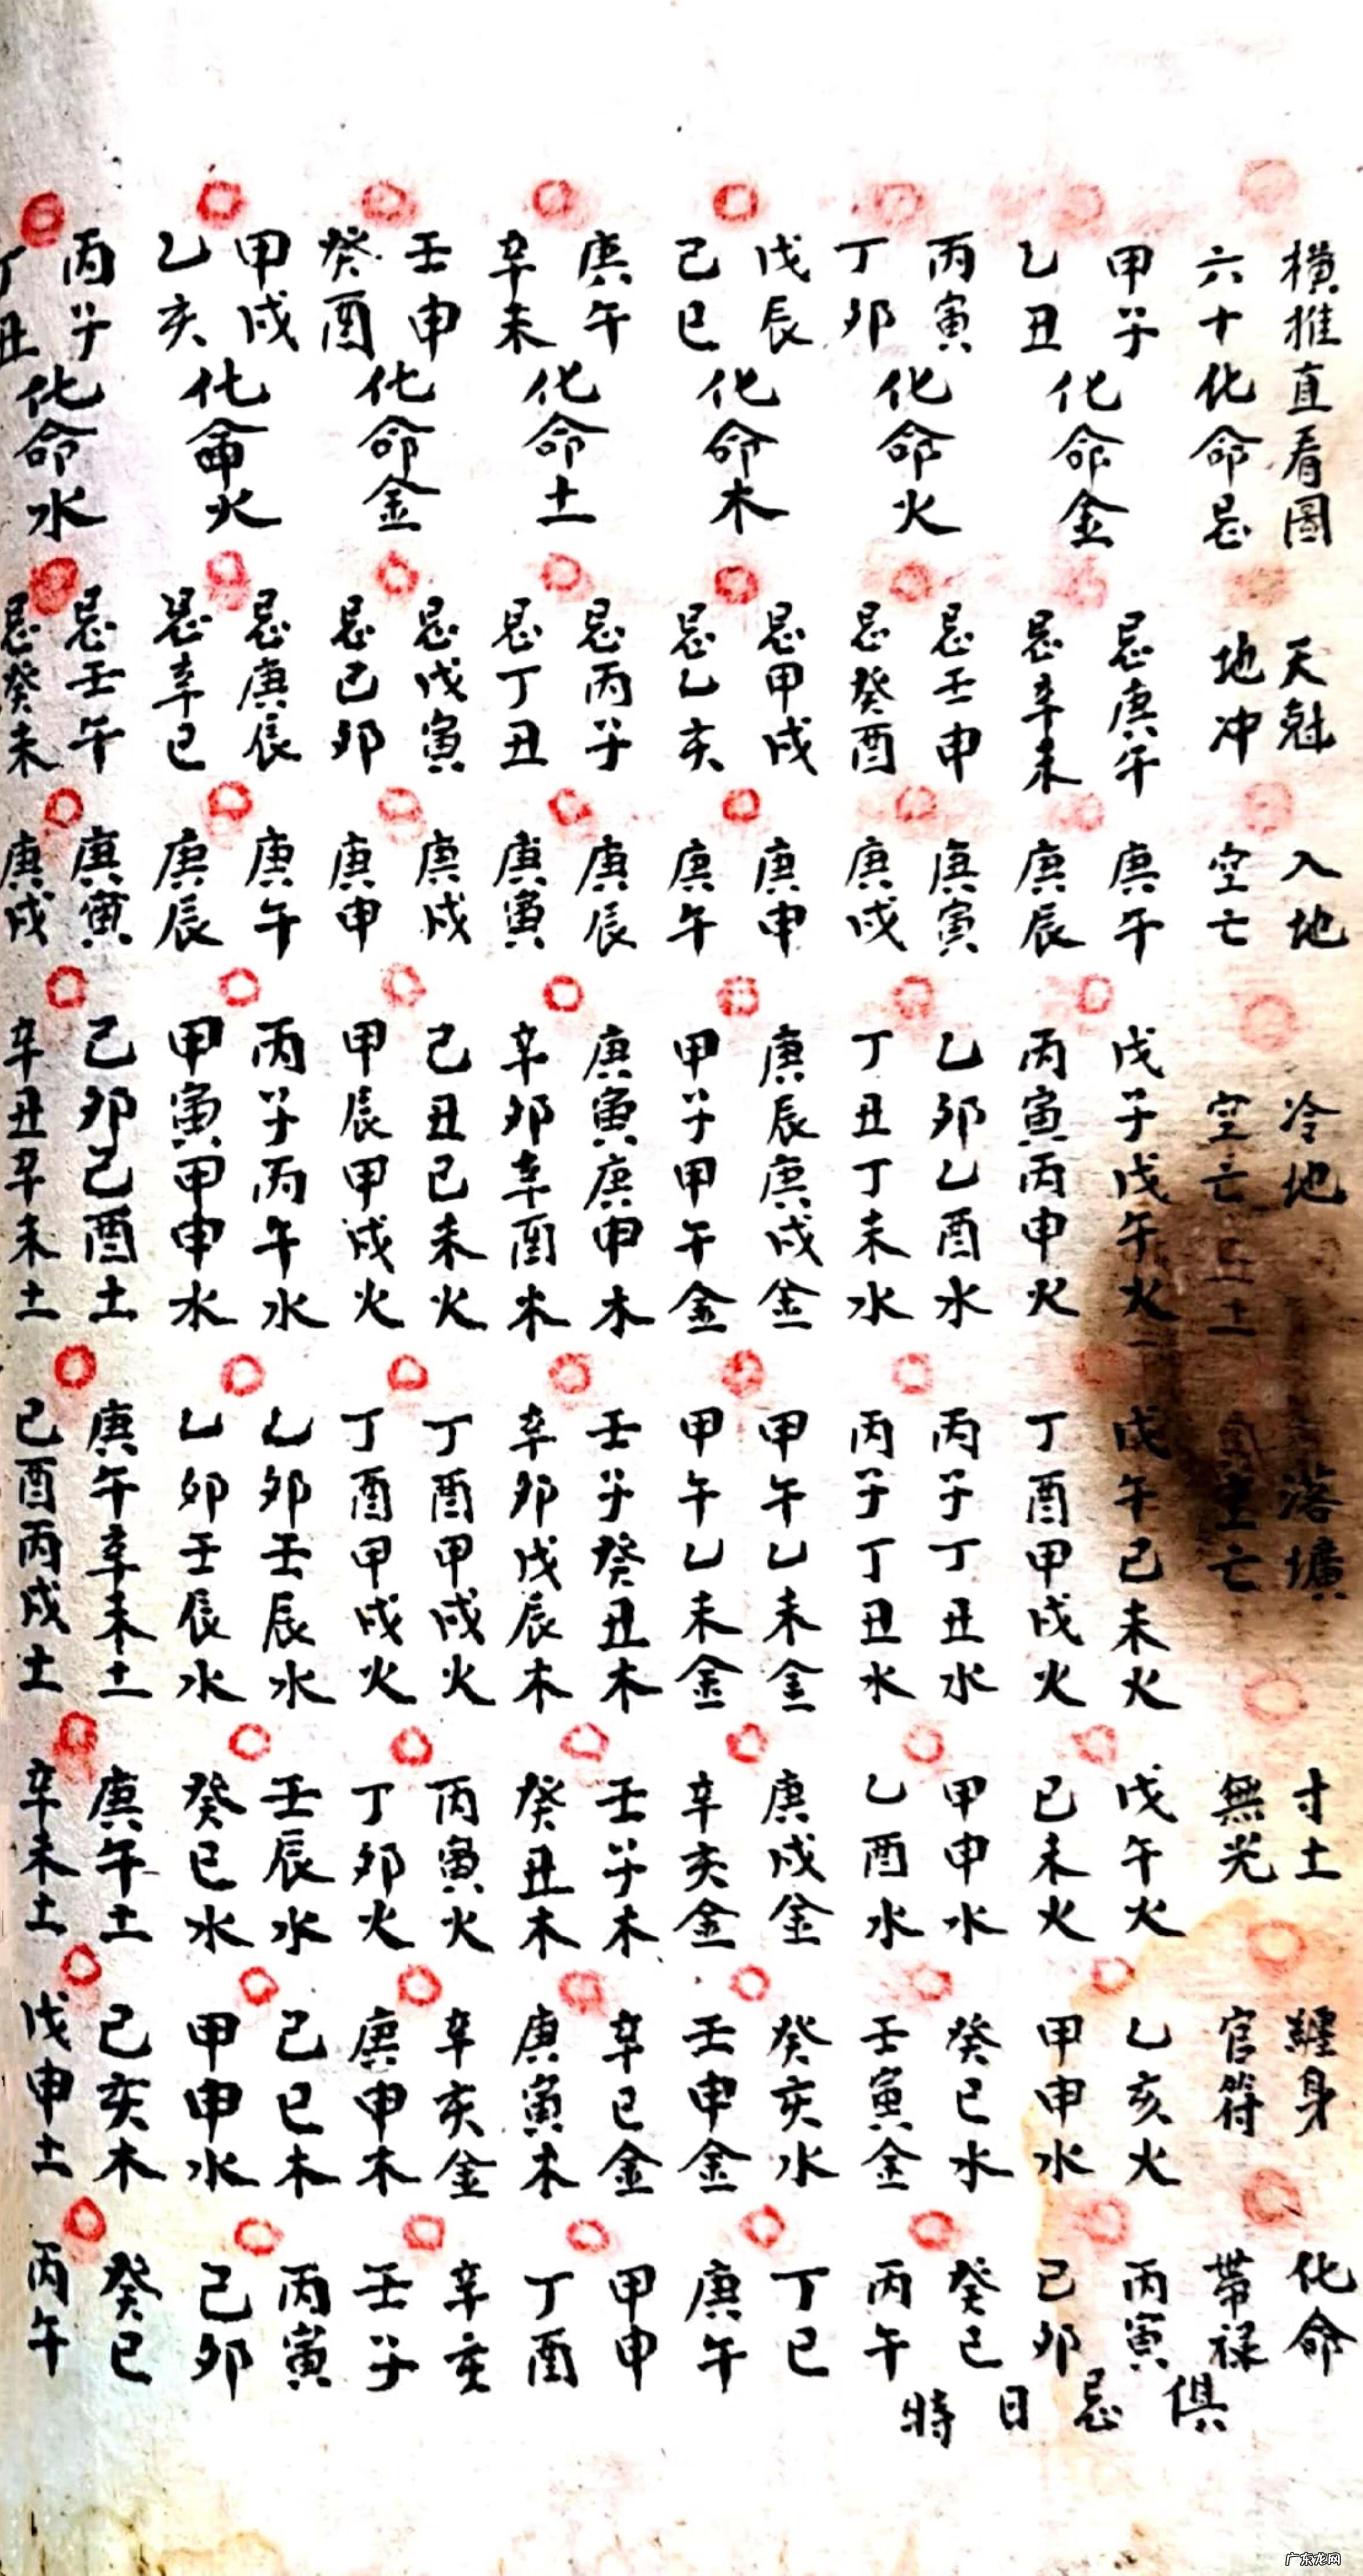 橫推直看圖 天尅 入地 冷地 落壙 寸土 纏身 化命
六十化命忌 地冲 空亡 空亡 空亡 無光 官符 帶禄
甲子 忌庚午 庚午 戊子戊午火 戊午己未火 戊午火 乙亥火 丙寅
化命金
乙丑 忌辛未 庚辰 丙寅丙申火 丁酉甲戌火 己未火 甲申水 己卯
丙寅 忌壬申 庚寅 乙卯乙酉水 丙子丁丑水 甲申水 癸巳水 癸巳
化命火
丁卯 忌癸酉 庚戌 丁丑丁未水 丙子丁丑水 乙酉水 壬寅金 丙午
戊辰 忌甲戌 庚申 庚辰庚戌金 甲午乙未金 庚戌金 癸亥水 丁巳
化命木
己巳 忌乙亥 庚午 甲子甲午金 甲午乙未金 辛亥金 壬申金 庚午
庚午 忌丙子 庚辰 庚寅庚申木 壬子癸丑木 壬子木 辛巳金 甲申
化命土
辛未 忌丁丑 庚寅 辛卯辛酉木 辛卯戊辰木 癸丑木 庚寅木 丁酉
壬申 忌戊寅 庚戌 己丑己未火 丁酉甲戌火 丙寅火 辛亥金 辛亥
化命金
癸酉 忌己卯 庚申 甲辰甲戌火 丁酉甲戌火 丁卯火 庚申木 壬子
甲戌 忌庚辰 庚午 丙子丙午水 乙卯壬辰水 壬辰水 己巳木 丙寅
化命火
乙亥 忌辛巳 庚辰 甲寅甲申水 乙卯壬辰水 癸巳水 甲申水 己卯
丙子 忌壬午 庚寅 己卯己酉土 庚午辛未土 庚午土 己亥木 癸巳
化命水
丁丑 忌癸未 庚戌 辛丑辛未土 己酉丙戌土 辛未土 戊申土 丙午
俱忌日時
广东龙网